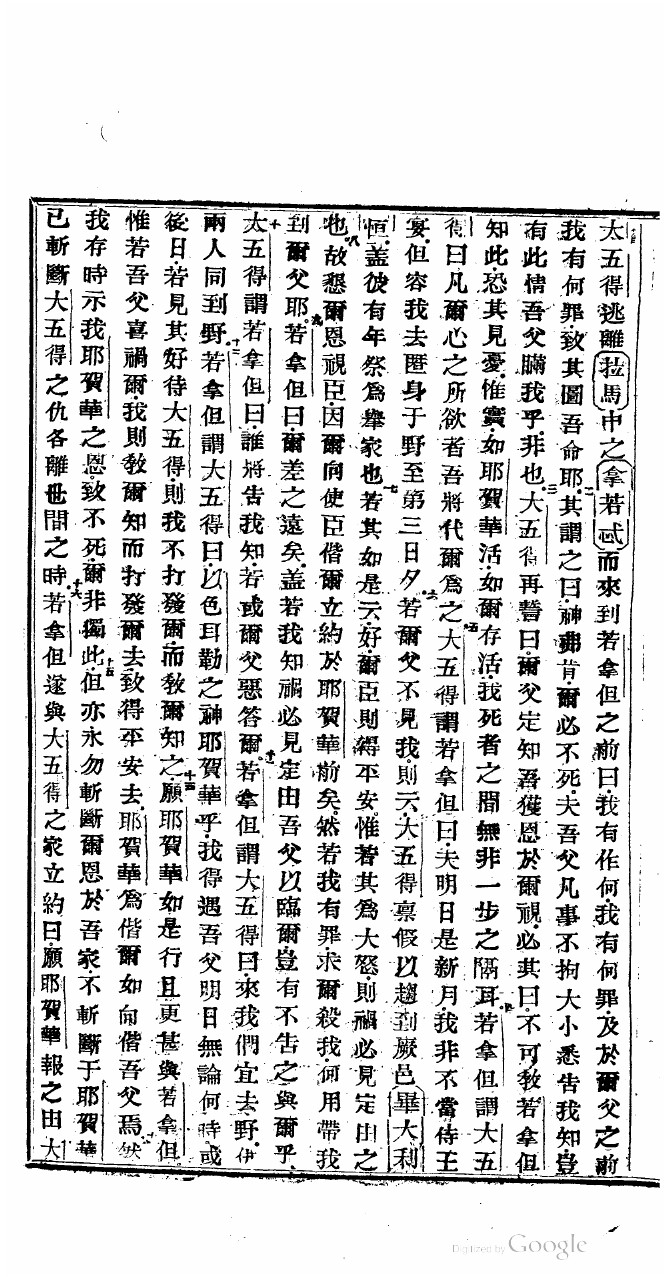 太五得逃離拉馬中之拿若忒而來到若拿但之前曰我有作何我有何罪及於爾父之前
我有何罪致其圖吾命耶二其謂之曰神弗肯爾必不死夫吾父凡事不拘大小悉告我知豈
有此情吾父瞞我乎非也三大五得再誓曰爾父定知吾獲恩於爾視必其曰不可教若拿但
知此恐其見憂惟實如耶賀華活如爾存活我死者之間無非一步之隔耳四若拿但謂大五
得曰凡爾心之所欲者吾將代爾為之五大五得謂若拿但曰夫明日是新月我非不當侍王
宴但容我去匿身于野至第三日夕六若爾父不見我則云大五得稟假以趨到厥邑畢大利
恒蓋彼有年祭為舉家也七若其如是云好爾臣則得平安惟若其為大怒則禍必見定由之
也八故懇爾恩視臣因爾向使臣偕爾立約於耶賀華前矣然若我有罪求爾殺我何用帶我
到爾父耶九若拿但曰爾差之遠矣蓋若我知禍必見定由吾父以臨爾豈有不告之與爾乎
十大五得謂若拿但曰誰將告我知若或爾父惡答爾十一若拿但謂大五得曰來我們宜去野伊
兩人同到野十二若拿但謂大五得曰以色耳勒之神耶賀華乎我得遇吾父明日無論何時或
後日若見其好待大五得則我不打發爾而教爾知之十三願耶賀華如是行且更甚與若拿但
惟若吾父喜禍爾我則教爾知而打發爾去致得平安去耶賀華為偕爾如向偕吾父焉十四然
我存時示我耶賀華之恩致不死爾非獨此十五但亦永勿斬斷爾恩於吾家不斬斷于耶賀華
已斬斷大五得之仇各離世間之時十六若拿但遂與大五得之家立約曰願耶賀華報之由大
Digitized by Google